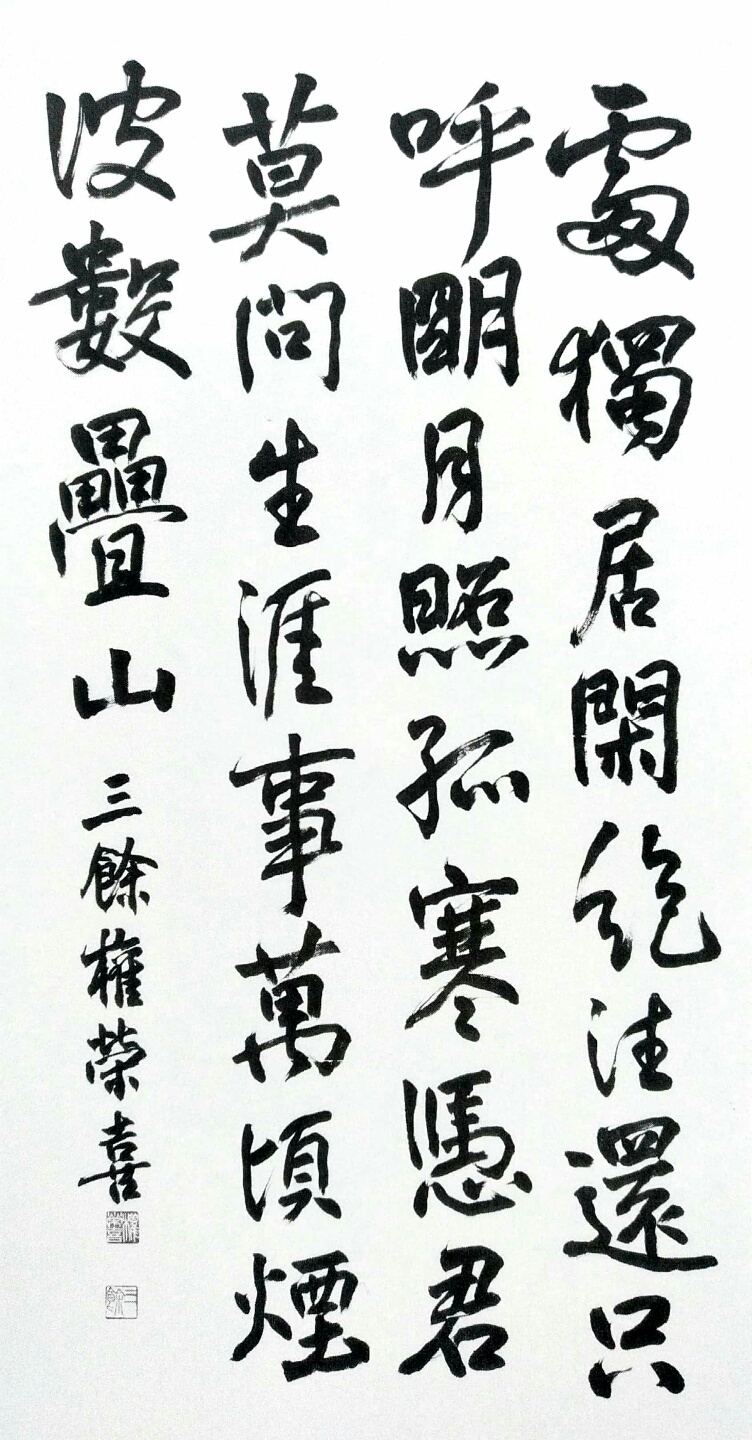 處獨居閑絶往還只
呼明月照孤寒憑君
莫問生涯事萬頃煙
波數疊山 三餘權榮喜
三餘